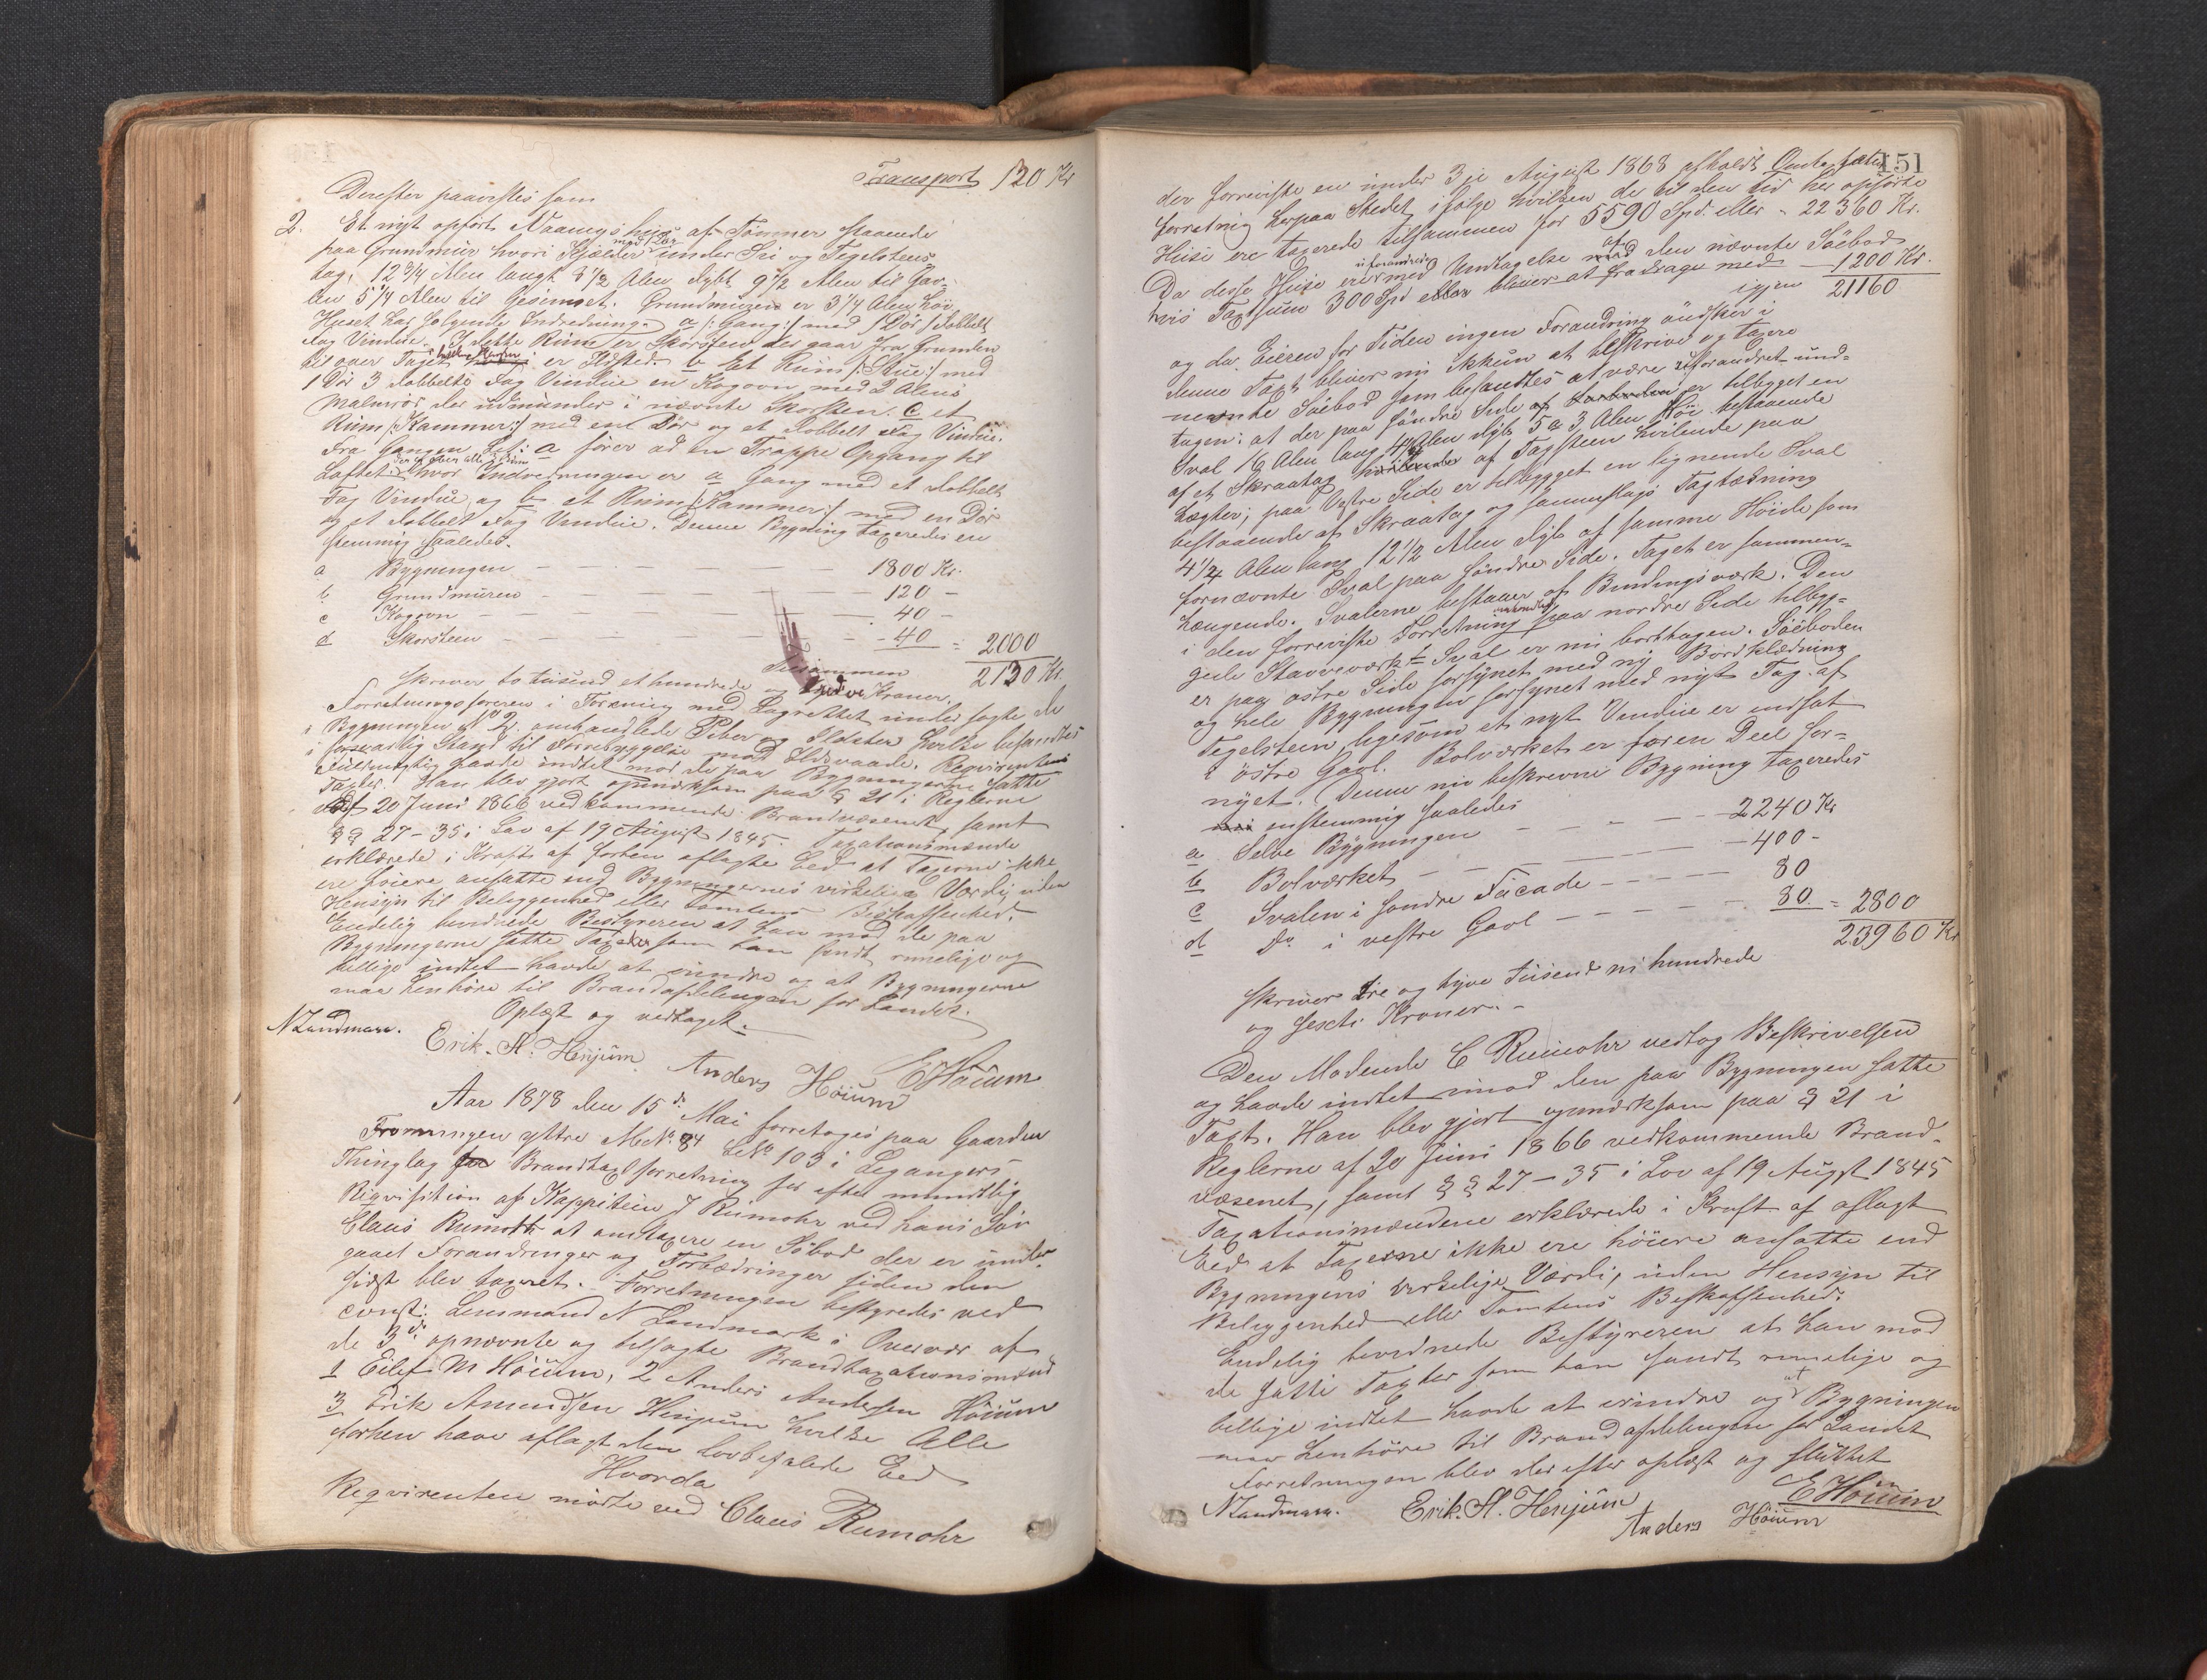 Transport 120 Kr
Derefter paavistes som
2. Et nyt opført Vaanings huus af Tømmer staaende
paa Grundmur hvori Kjælder med Dør under Svi og Tegelsteens
tag, 12 3/4 Alen langt 8 1/2 Alen dybt 9 1/2 Alen til Gav-
len 5 1/4 Alen til Gesimset. Grundmuren er 3 1/4 Alen høi
Huset har følgende Indredning. a /: Gang :/ med 1 Dør 1 dobbelt
Fag Vindue. I dette Rum er Skorsten der gaar fra Grunden
til over Taget, er Ildsted. b Et Rum /: Stue :/ med
1 Dør 3 dobbelte Fag Vindue en Kogovn med 2 Alens
Malmrør der udmunder i nævnte Skorsten. c et
Rum /: Kammer :/ med en Dør og et dobbelt Fag Vindue.
Fra Gangen Lit: a fører ad en Trappe Opgang til
Loftet hvor Indredningen er a Gang med et dobbelt
Fag Vindue og b et Rum /: Kammer :/ med en Dør
og et dobbelt Fag Vindue. Denne Bygning taxeredes en
stemmig saaledes.
a Bygningen 1800 Kr.
b Grundmuren 120 -
c Kogovn 40 -
d Skorsteen 40 = 2000
Tilsammen 2120 Kr.
skriver to tusind et hundrede og tyve Kroner.
Forretningsføreren i Forening med Lagrettet undersøgte de
i Bygningen No 2. omhandlede Piber og Ildsteder hvilke befandtes
i forsvarlig Stand til Forrebyggelse mod Ildsvaade. Reqvirentens
Fuldmægtig havde indtet mod de paa Bygningerne satte
Taxter. Han blev gjort opmærksom paa § 21 i Reglerne
af 20 Juni 1866 vedkommende Brandvæsenet, samt
§§ 27 - 35 i Lov af 19 August 1845. Taxationsmænde
erklærede i Kraft af forhen aflagte Eed at Taxerne ikke
ere høiere ansatte end Bygningernes virkelige Værdi, uden
Hensyn til Beliggenhed eller Tomtens Beskaffenhed.
Endelig bevidnede Bestyreren at han mod de paa
Bygningerne satte Taxter som han fandt rimelige og
billige indtet havde at erindre og at Bygningerne
maa henhøre til Brandafdelingen for Landet.
Oplæst og vedtaget.
N Landmark. Erik. A. Henjum. Anders Höium EHöium
Aar 1878 den 15de Mai forretoges paa Gaarden
Fromungen yttre M No 84 L No 103 i Legangers
Thinglag Brandtaxtforretning for efter mundtlig
Reqvisition af Kappitein J Rumohr ved hans Søn
Claus Rumohr at omtaxere en Söbod der er under
gaaet Forandringer og Forbædringer siden den
sidst blev taxeret. Forretningen bestyredes ved
const: Lensmand N Landmark i Overvær af
de 3de opnævnte og tilsagte Brandtaxationsmænd
1 Eilef M Höium, 2 Anders Andersen Höium
3 Erik Amundsen Henjum hvilke Alle
forhen have aflagt den lovbefalede Eed
Hvorda
Reqvirenten mödte ved Claus Rumohr
151
der forreviste en under 3die August 1868 afholdt Omtaxations
forretning herpaa Stedet ifølge hvilken de til den tid her opførte
Huse ere taxerede tilsammen for 5590 Spd. eller = 22360 Kr.
Da disse Huse ere uforandrede med Undtagelse af den nævnte Söebod
hvis Taxtsum 300 Spd bliver at fradrage med 1200 Kr.
igjen 21160
og da Eieren for Tiden ingen Forandring öndsker i
denne Taxt bliver nu ikkun at beskrive og taxere
nævnte Söebod som befandtes at være uforandret und-
tagen: at der paa søndre Side er tilbygget en
Sval 16 Alen lang 4 1/2 Alen dyb 5 a 3 Alen høi bestaaende
af et Skraatag af Tagsteen hvilende paa
Lægter; paa Vestre Side er tilbygget en lignende Sval
bestaaende af Skraatag og sammeslags Tagtækning
4 1/4 Alen lang 12 1/2 Alen dyb af samme Høide som
fornævnte Sval paa söndre Side. Taget er sammen-
hængende. Svalerne bestaaer af Bindingsværk. Den
i den forreviste Forretning omhandlede paa nordre Side tilbyg-
gede Stavværks Sval er nu borttagen. Söeboden
er paa östre Side forsynet med ny Bordklædning
og hele Bygningen forsynet med nyt Tag af
Tegelsteen, ligesom et nyt Vindue er indsat
i östre Gavl. Bolværket er for en Deel for-
nyet. Denne nu beskrevne Bygning taxeredes
enstemmig saaledes
a Selve Bygningen 2240 Kr
b Bolværket 400 -
c Svalen i søndre Facade 80
d Do i vestre Gavl 80. = 2800
23960 Kr
skriver tre og tyve tusend ni hundrede
og sexti Kroner. -
Den Mødende C Rumohr vedtog Beskrivelsen
og havde indtet imod den paa Bygningen satte
Taxt. Han blev gjort opmærksom paa § 21 i
Reglerne af 20 Juni 1866 vedkommende Brand-
væsenet, samt §§ 27 - 35 i Lov af 19 August 1845
Taxationsmændene erklærede i Kraft af aflagt
Eed at Taxerne ikke ere höiere ansatte end
Bygningens virkelige Værdi, uden Hensyn til
Beliggenhed eller Tomtens Beskaffenhed.
Endelig bevidnede Bestyreren at han mod
de satte Taxter som han fandt rimelige og
billige indtet havde at erindre og at Bygningen
maa henhöre til Brandafdelingen for Landet
Forretningen blev derefter oplæst og sluttet
N Landmark. Erik. A. Henjum Anders Höium EHöium